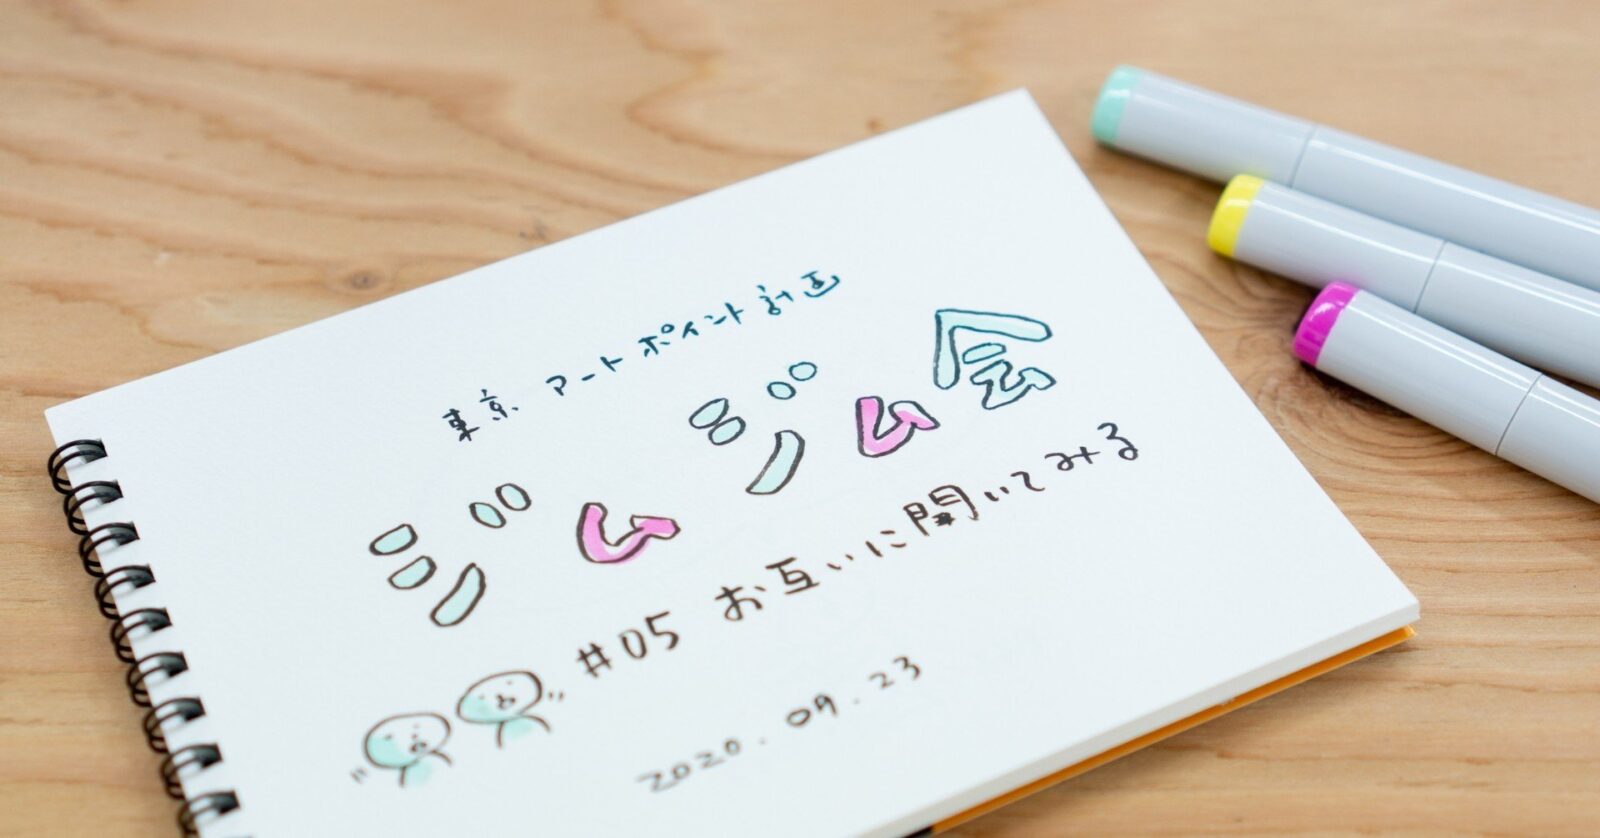 東京アートポイント計画
ジムジム会
#05 お互いに聞いてみる
2020.09.23